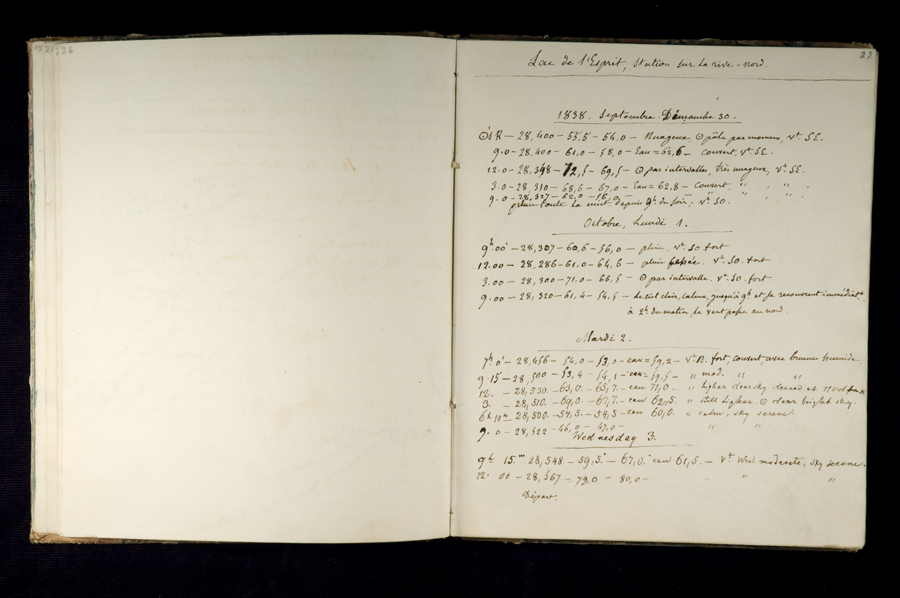 27
Lac de l'Esprit, Station sur la rive-nord.
1838. Septembre. Dimanche 30.
⊙ s R — 28,400 — 55,5 — 54,0 — Nuageux, ⊙ pâle par momens, Vt. SE.
9.0 — 28,400 — 61,0 — 58,0 — Eau = 62,6 — couvert, Vt. SE.
12.0 — 28,348 — 72,5 — 69,5 — ⊙ par intervalles, très nuageux, Vt. SE.
3.0 — 28,310 — 68,6 — 67,0 — Eau = 62,8 — couvert. " , " ,
9.0 — 28,327 — 62,0 — 58,0 — " , " .
pluie toute la nuit depuis 9h du soir; Vt. SO.
Octobre, Lundi 1.
9h.00' — 28,307 — 60,6 — 56,0 — pluie. Vt. SO fort
12.00 — 28,286 — 61,0 — 64,6 — pluie Vt. SO. fort
3.00 — 28,300 — 71,0 — 66,5 — ⊙ par intervalle. Vt. SO. fort
9.00 — 28,320 — 61,4 — 54,5 — Le ciel clair, calme, jusqu'à 9h et se recouvrent immédiatt.
à 2h. du matin, le vent passe au nord.
Mardi 2.
7h 0' — 28,456 — 54,0 — 53,0 — eau = 59,2 — Vt. N. fort, couvert avec brume humide.
9.15 — 28,500 — 53,4 — 54,1 — eau = 59,5 — " mod. " "
12. — 28,530. — 63,0. — 65,7. — eau 71,0 — " ligher clear sky cleared at
3. — 28,510. — 69,0. — 67,7. — eau 62,5. " still ligher. ⊙ clear bright sky.
6h 10m 28,500. — 54,5. — 54,5 — eau 60,0. " calm, sky serene
9.0 — 28,522 — 46,0 — 47,0 — " "
Wednesday 3.
9h. 15.m 28,548 — 59,5. — 67,0. eau 61,5. — Vt West moderate, sky serene.
12. 00 — 28,567 — 79,0 — 80,0 — " "
Départ.